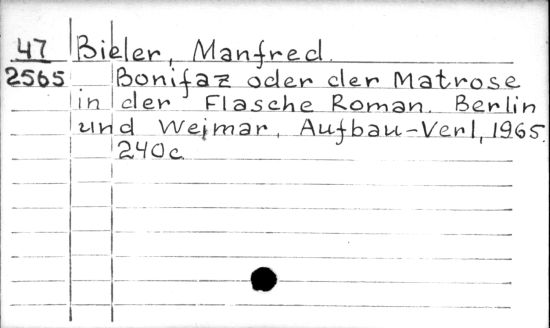 47 Bieler, Manfred.
2565 Bonifaz oder der Matrose
in der Flasche Roman. Berlin
und Weimar, Aufbau-Verl, 1965.
240c